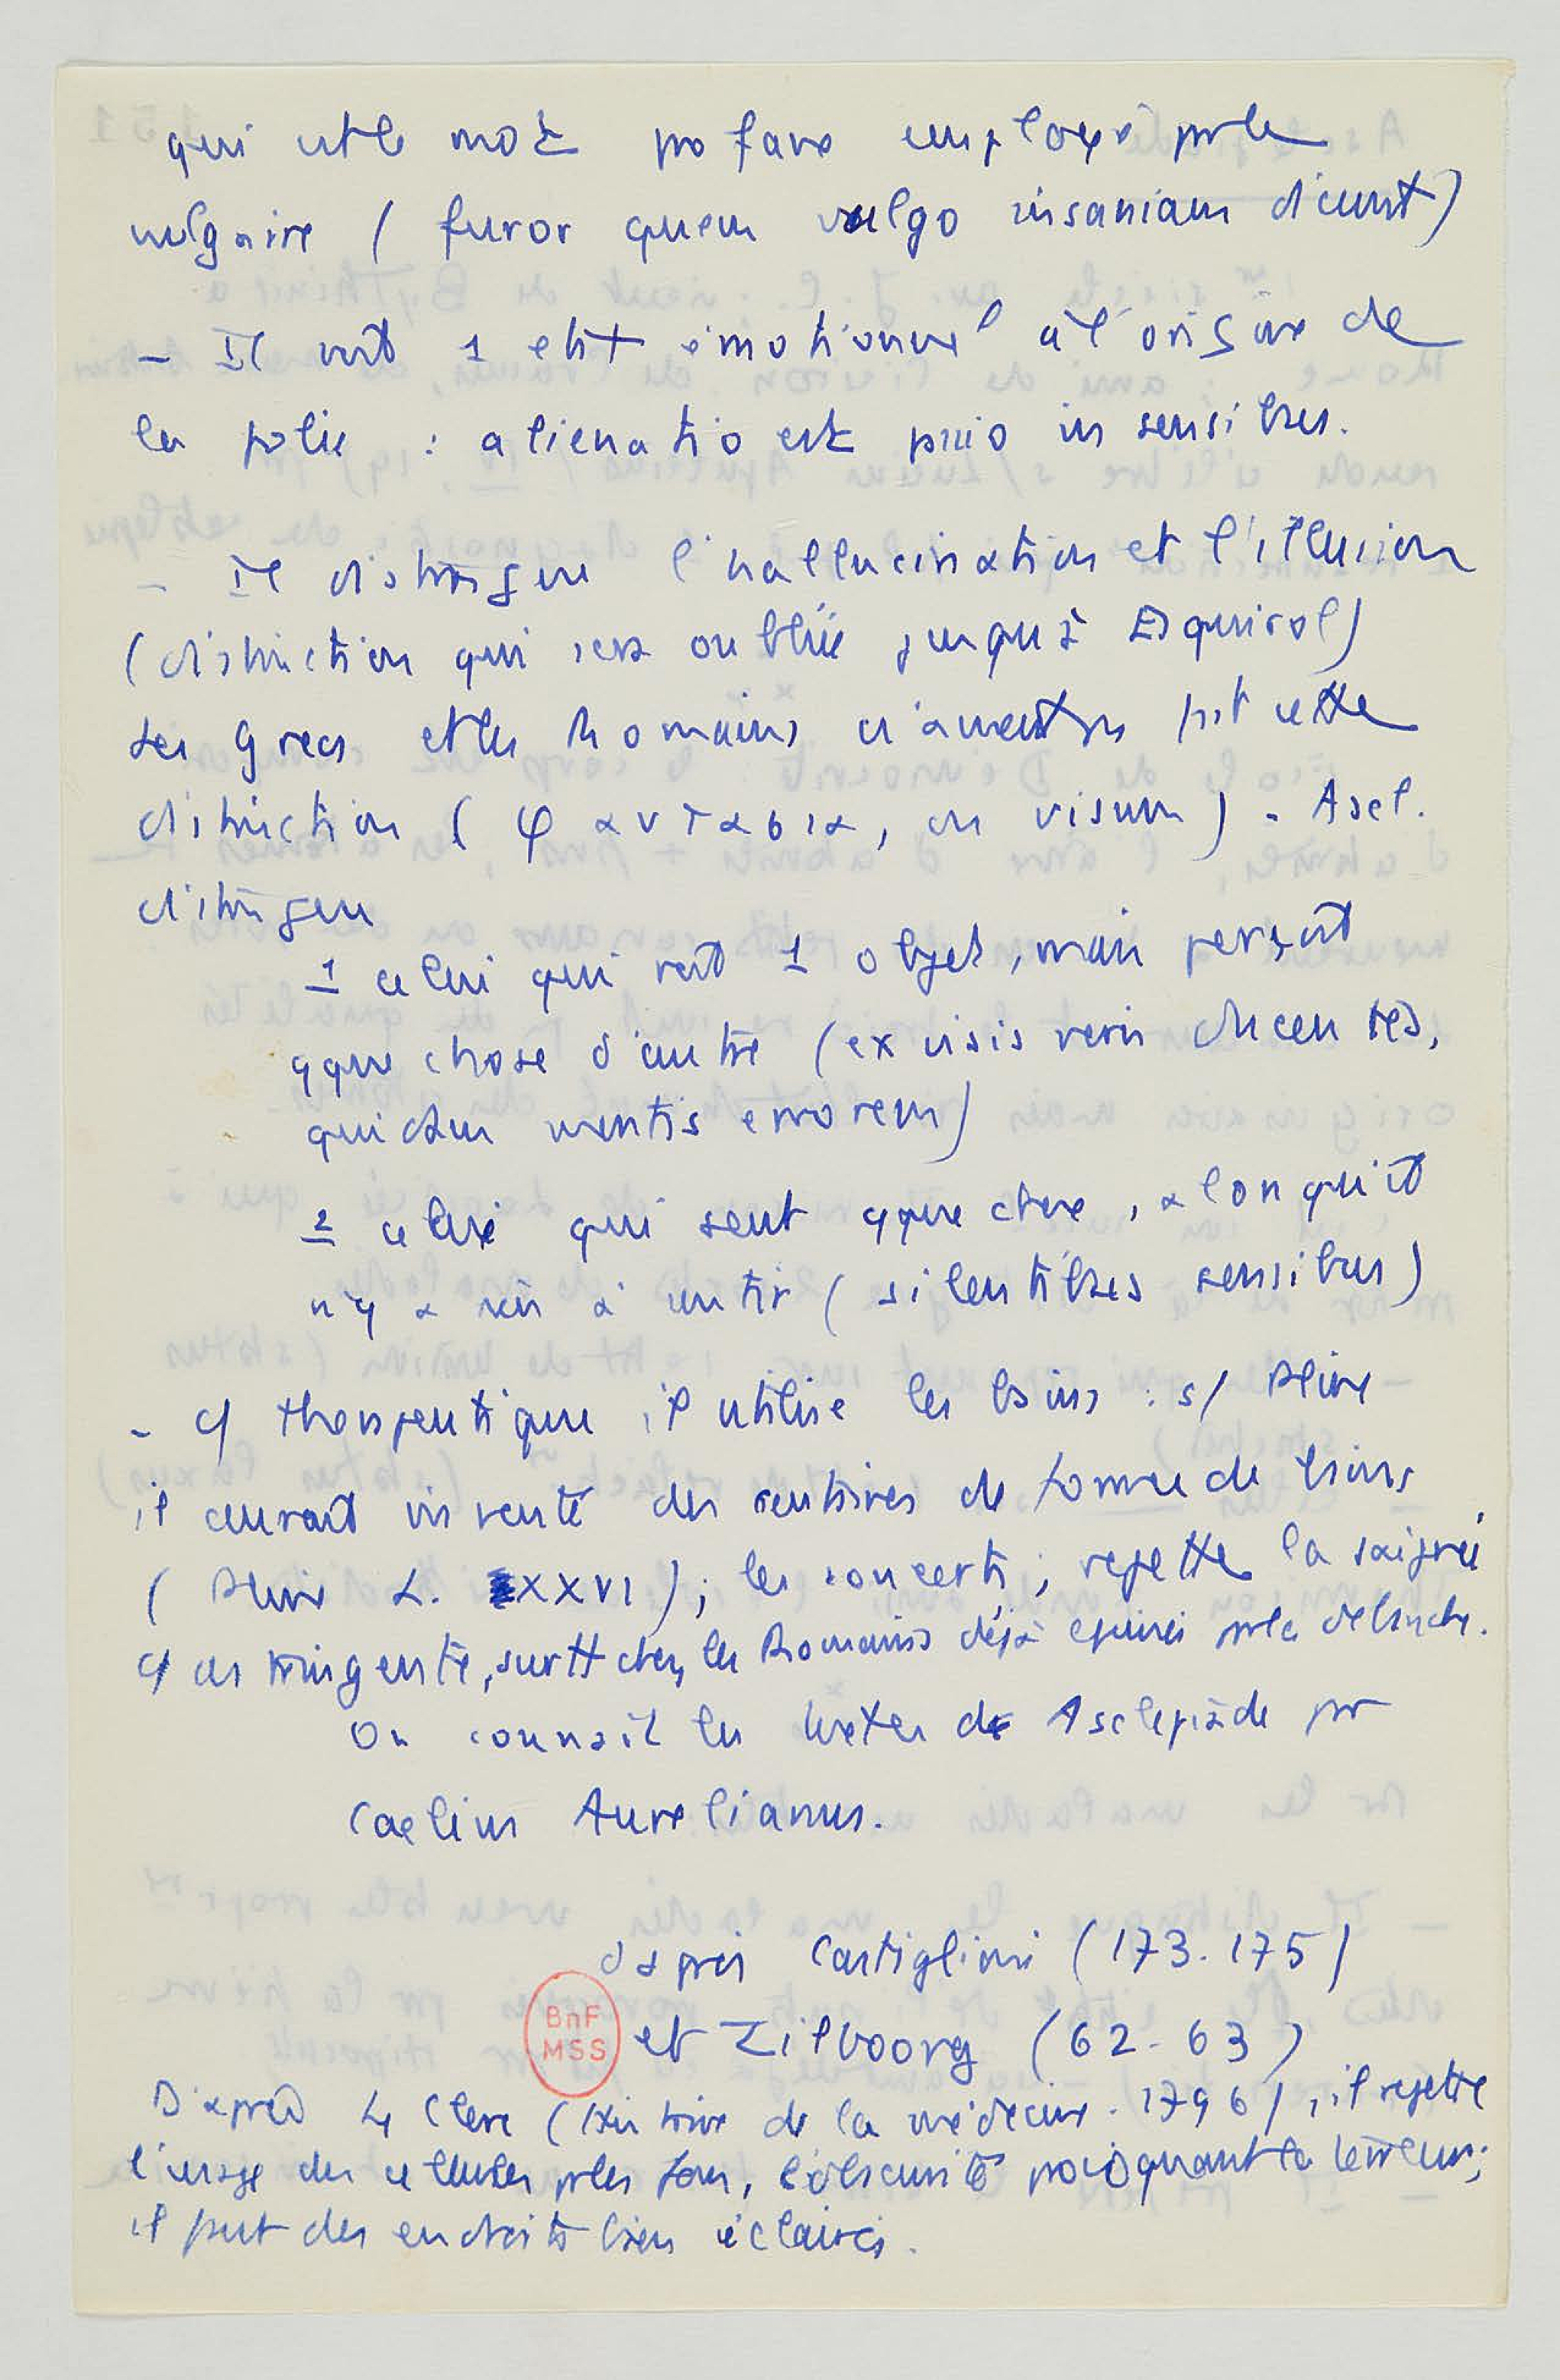 qui est le mot profane employé par le
vulgaire ( furor quem vulgo insaniam dicunt)
– Il voit 1 elt émotionnel à l'origine de
la folie : alienatio est passio in sensibus.
– Il distingue l'hallucination et l'illusion
(distinction qui sera oubliée jusqu'à Esquirol)
Les Grecs et les Romains n'avaient pas fait cette
distinction ( φαντασια, ou visum ) - Ascl.
distingue
1 celui qui voit 1 objet, mais perçoit
qque chose d'autre (ex visis veris ducentes,
quidam mentis errorem)
2 celui qui sent qque chose, alors qu'il
n'y a rien à sentir ( silentibus sensibus)
– c/ thérapeutique, il utilise les bains : s/ Pline
il aurait inventé des centaines de formes de bains
( Pline L. XXVI) ; les concerts ; rejette la saignée
c/ astringente, surtt chez les Romains déjà épuisés par la débauche.
On connaît les textes de Asclépiade par
Caelius Aurelianus.
d'après Castiglioni (173-175)
BnF
MSS
et Zilboorg (62-63)
D'après Le Clerc (Histoire de la médecine. 1796), il rejette
l'usage des cellules pr les fous, l'obscurité provoquant la terreur ;
il put des endroits bien éclairés.